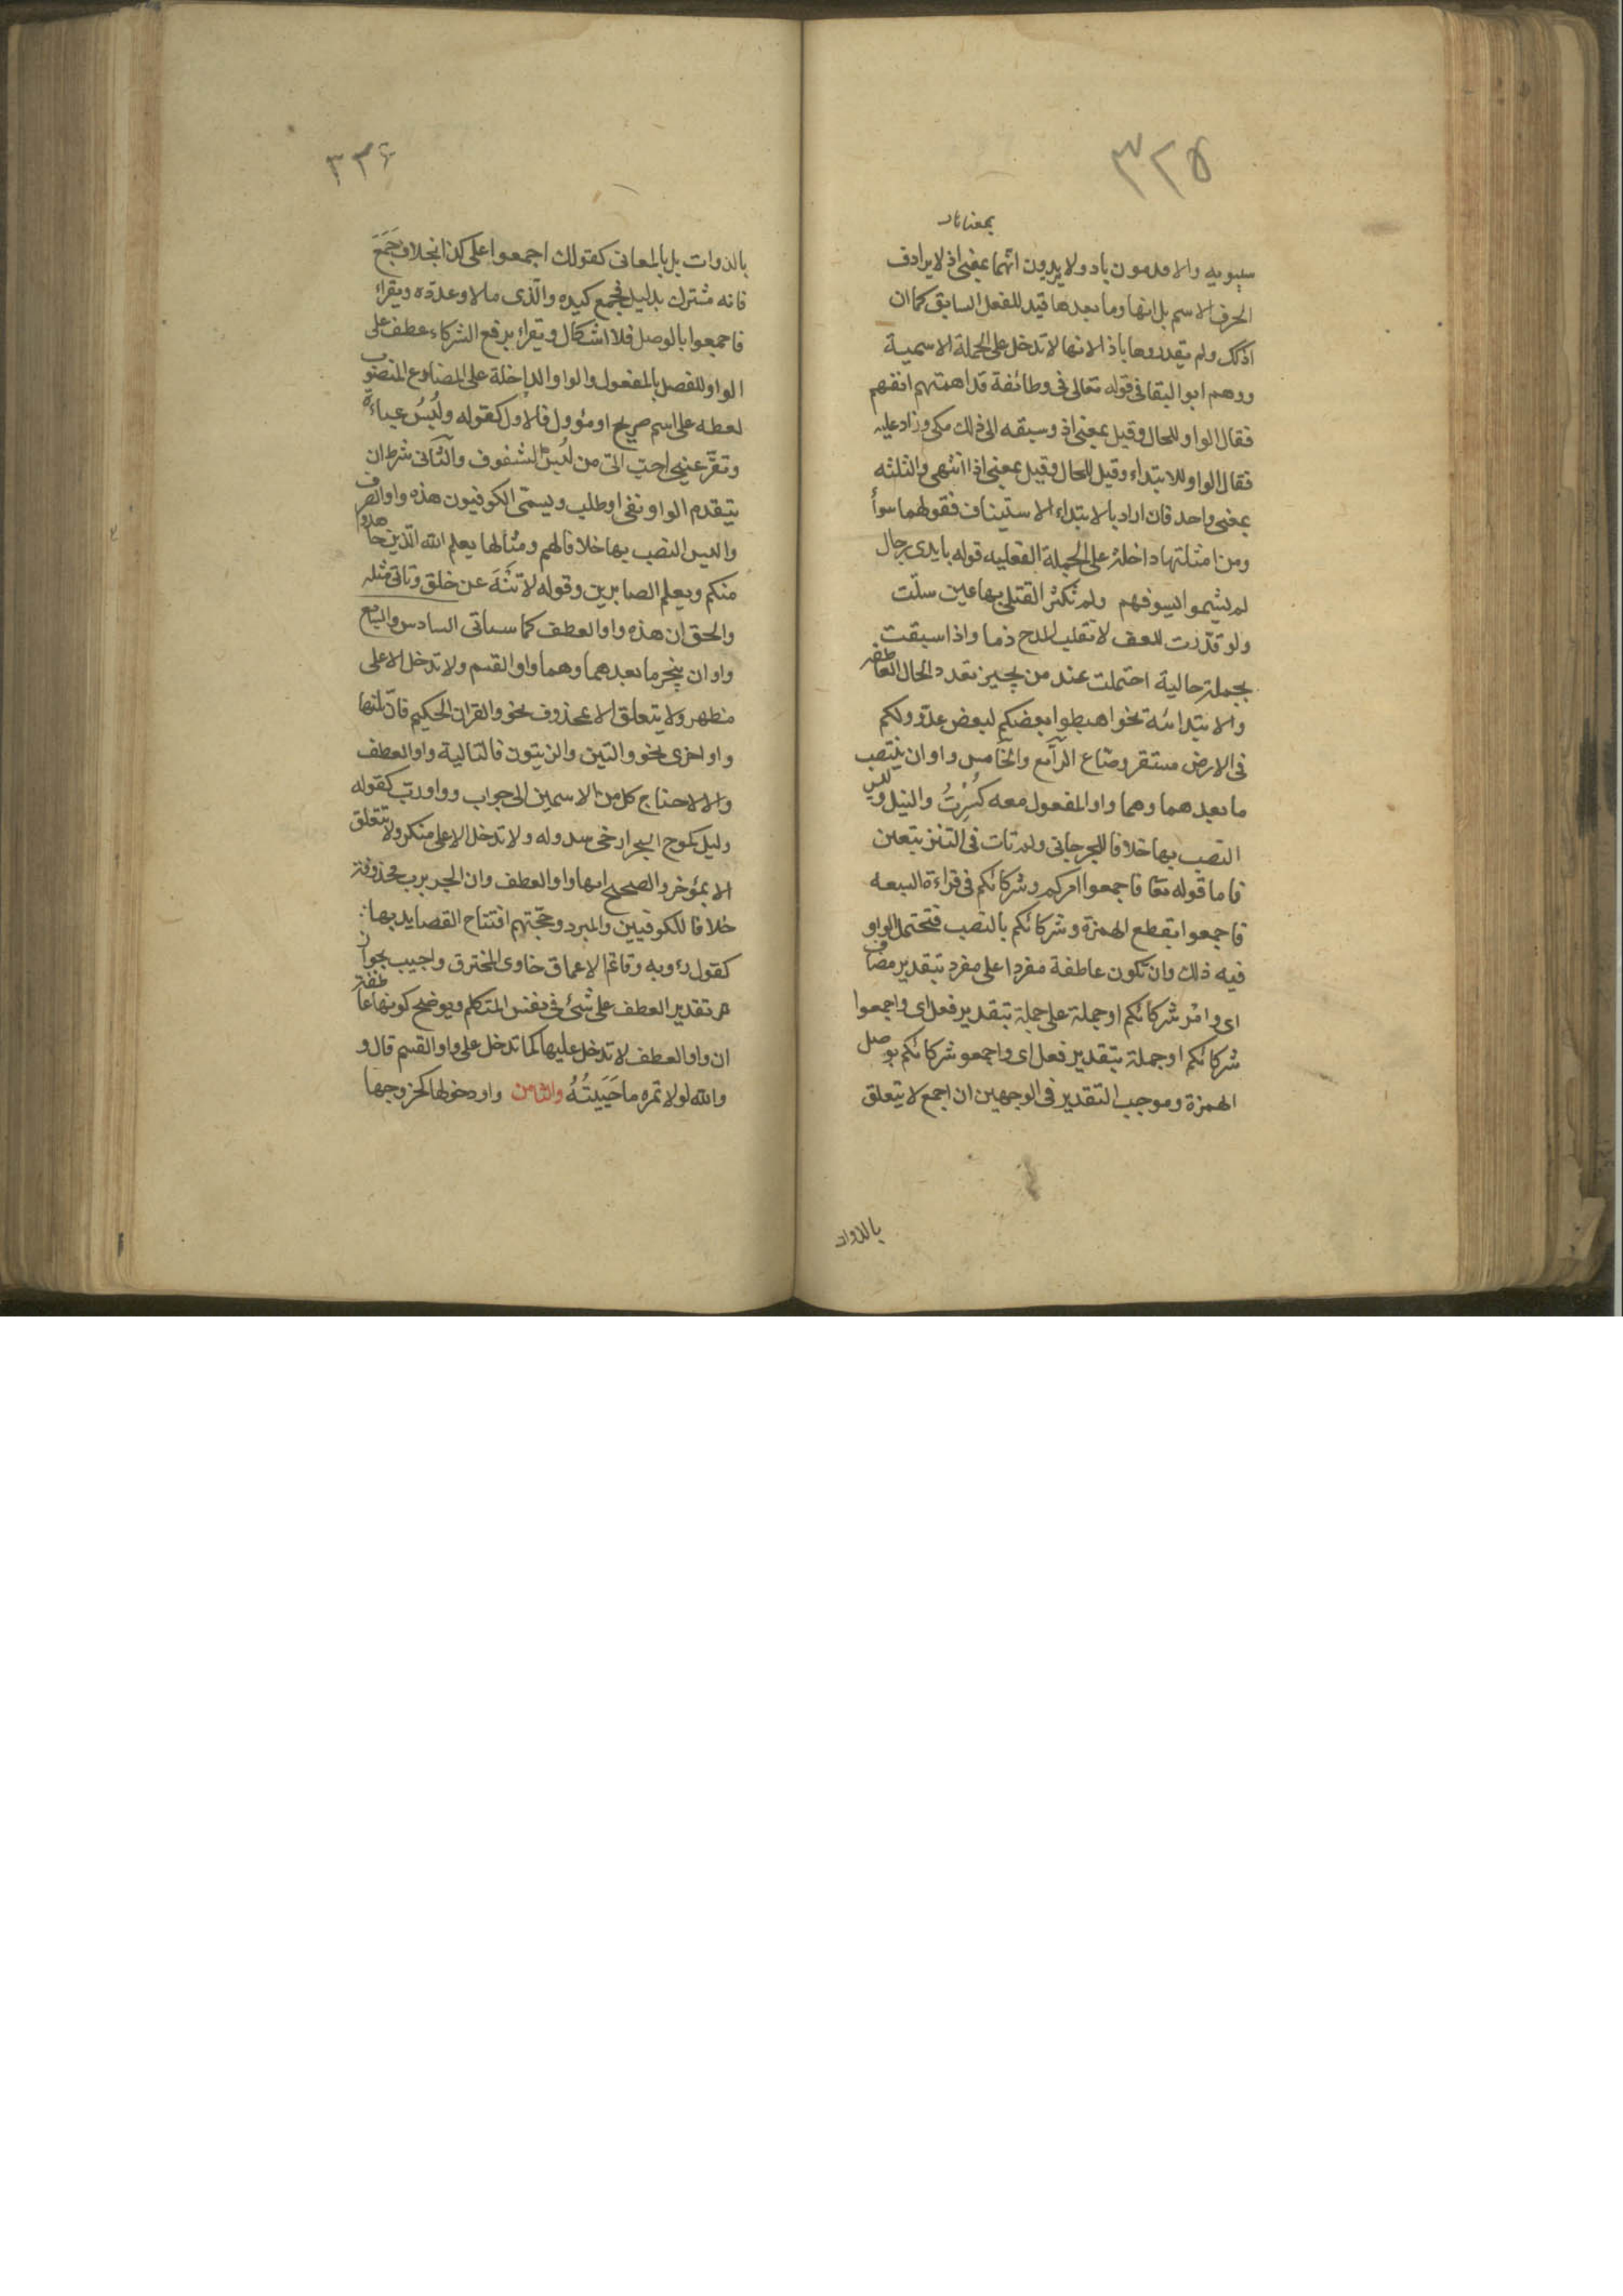 ٣٣٥
سيبويه والاقدمون باذ ولا يريدون انهما بمعنى اذ لا يرادف
الحرف الاسم بل انها وما بعدها قيد للفعل السابق كما ان
اذ كك ولم يقدروها باذا لانها لا تدخل على الجملة الاسمية
ووهم ابو البقا فى قوله تعالى فى وطائفة قد اهمتهم انفسهم
فقال الواو للحال وقيل بمعنى اذ وسبقه الى ذلك مكى وزاد عليه
فقال الواو للابتداء وقيل للحال وقيل بمعنى اذ انتهى والثلثه
بمعنى واحد فان اراد بالابتداء الاستيناف فقولهما سوأ
ومن امثلتها داخلة على الجملة الفعليه قوله بايدى رجال
لم يشيموا سيوفهم ولم تكثر القتلى بها حين سلت
ولو قدرت للعطف لانقلب المدح ذما واذا سبقت
بجملة حالية احتملت عند من يجيز تعدد الحال العاطفه
والابتدائيه نحو اهبطوا بعضكم لبعض عدو ولكم
فى الارض مستقر ومتاع الرابع والخامس واوان ينتصب
ما بعدهما وهما واو المفعول معه كسرت والنيل وليس
النصب بها خلافا للجرجانى ولم تات فى التنزيل بيقين
فاما قوله تعا فاجمعوا امركم وشركائكم فى قراءة السبعه
فاجمعوا بقطع الهمزة وشركائكم بالنصب فتحتمل الواو
فيه ذلك وان تكون عاطفة مفردا على مفرد بتقدير مضاف
اى وامر شركائكم او جملة على جملة بتقدير فعل اى واجمعوا
شركائكم او جملة بتقدير فعل اى واجمعو شركائكم بوصل
الهمزة وموجب التقدير فى الوجهين ان اجمع لا يتعلق
بالذوات
٣٣۶
بالذوات بل بالمعانى كقولك اجمعوا على كذا بخلاف جَمَعَ
فانه مشترك بدليل فجمع كيده والذى جمع مالا وعدده ويقراء
فاجمعوا بالوصل فلا اشكال ويقراء برفع الشركاء عطف على
الواو للفصل بالمفعول والواو الداخلة على المضارع المنصوب
لعطفه على اسم صريح او مؤول فالاول كقوله ولُبْسُ عباءة
وتقرّ عينى احب الىّ من لُبس الشفوف والثانى شرط ان
يتقدم الواو نفى او طلب ويسمى الكوفيون هذه واو الصرف
وليس النصب بها خلافا لهم ومثالها يعلم الله الذين جاهدوا
منكم ويعلم الصابرين وقوله لا تَنْهَ عن خلق وتاتى مثله
والحق ان هذه واو العطف كما سياتى السادس والسابع
واوان ينجر ما بعدهما وهما واو القسم ولا تدخل الا على
مظهر ولا يتعلق الا بمحذوف نحو والقران الحكيم فان تلتها
واو اخرى نحو والتين والزيتون فالتالية واو العطف
والا لاحتاج كل من الاسمين الى جواب وواو رب كقوله
وليل كموج البحر ارخى سدوله ولا تدخل الا على منكر ولا يتعلق
الا بمؤخر والصحيح انها واو العطف وان الجر برب محذوفة
خلافا للكوفيين والمبرد وحجتهم افتتاح القصايد بها
كقول رؤبه وقاتم الاعماق خاوى المخترق واجيب بجواز
تقدير العطف على شئ فى نفس المتكلم ويوضح كونها عاطفة
ان واو العطف لا تدخل عليها كما تدخل على واو القسم قال و
والله لولا تمره ما حَبَبْتُهُ والثامن واو دخولها كخروجها